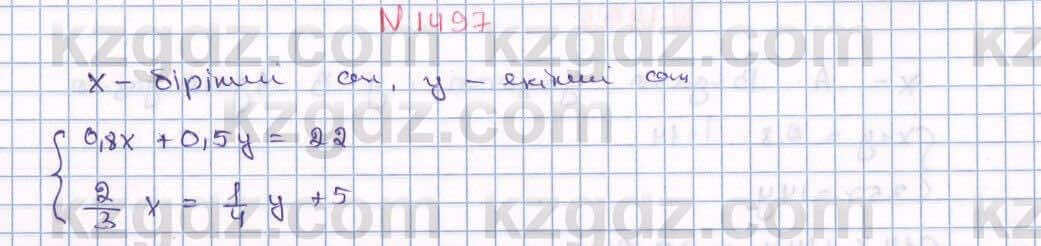 N 1497
x - бірінші сан, y - екінші сан
0,8x + 0,5y = 22
2/3 x = 1/4 y + 5
kzgdz.com kzgdz.com kz
kzgdz.com
kzgdz.com kz